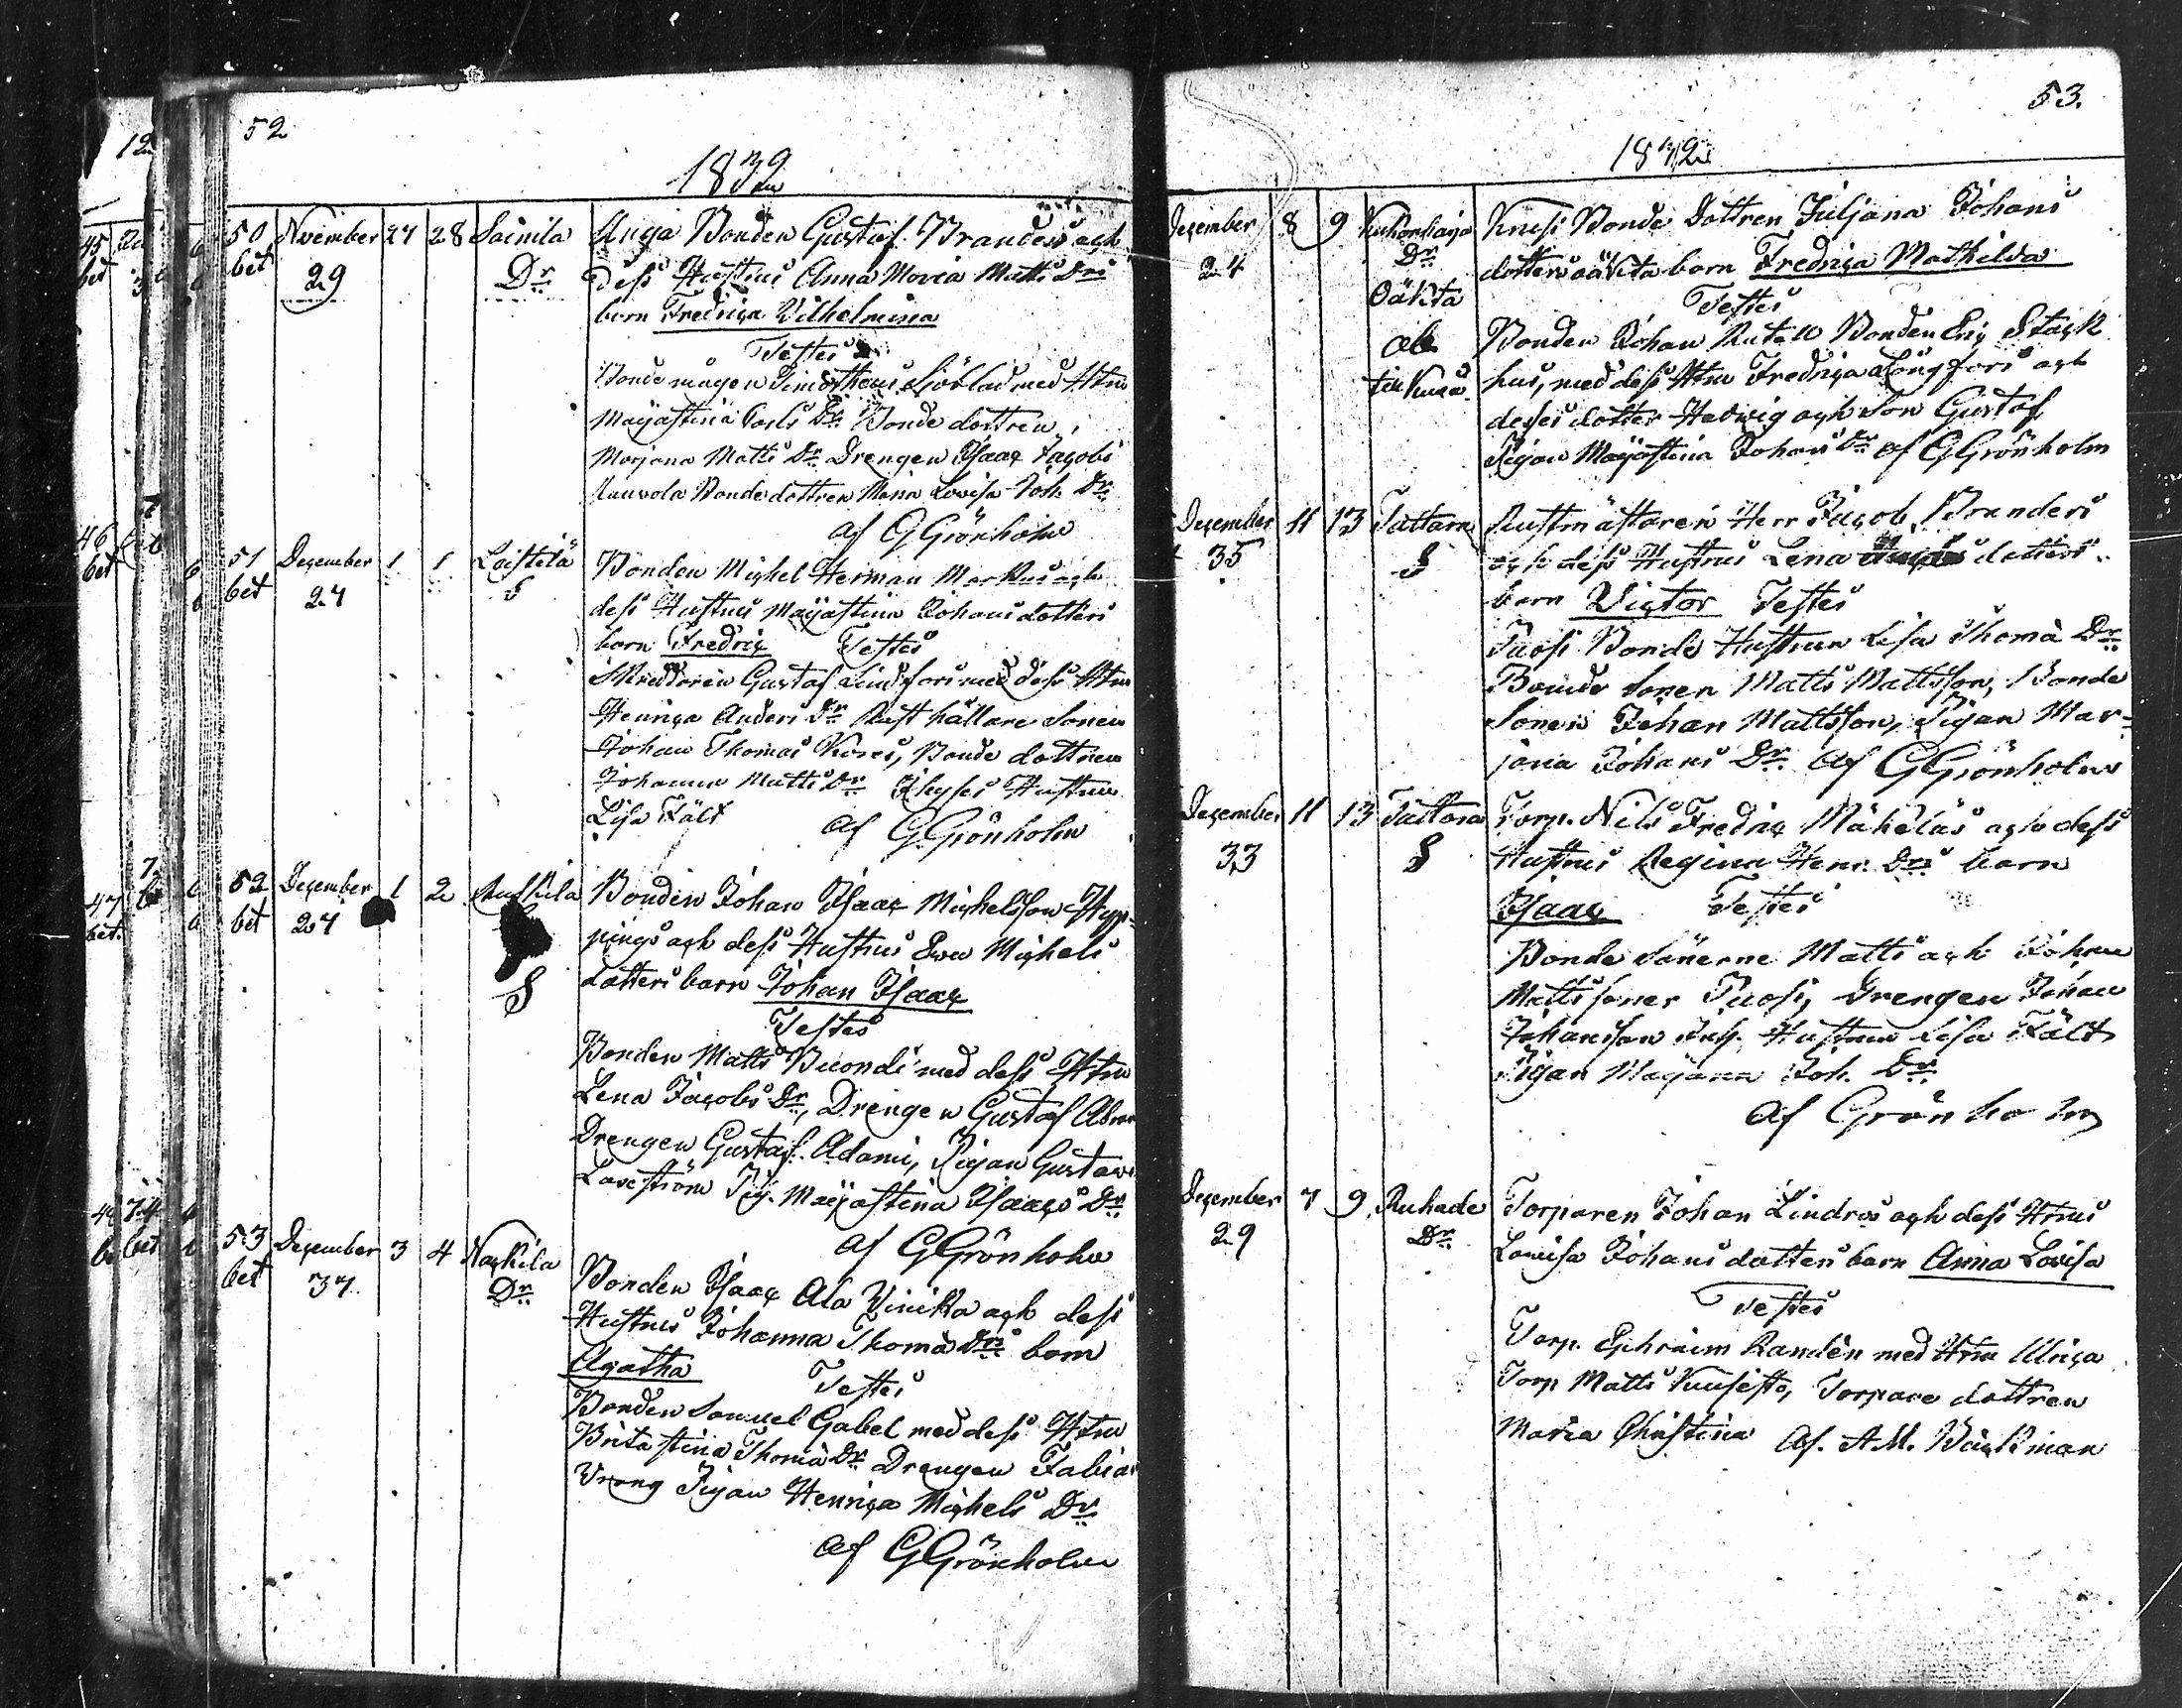 52
1832
50 November 27 28 Soinila Unga Bonden Gustaf Branders och
bet 29 Dr dess Hustrus Anna Maria Matts Drs
barn Fredrica Vilhelmina
Testes
Bonde mågen Timotheus med Htru
Majastina Carls Dr Bonde dottren
Marjana Matts Dr Drengen Isaac Jacobs
Bonde dottren Maria Lovisa Joh. Dr
af G Grönholm
51 December 1 1 Laistela Bonden Michel Herman Markus ach
bet 27 S dess Hustrus Majastina Johans dotters
barn Fredric Testes
Skreddaren Gustaf Lindfors med dess Htru
Henrica Anders Dr Rust hållare Sonen
Johan Thomas Bonde dottren
Johanna Matts Dr Hustrun
Lisa Fält af G. Grönholm
52 December 1 2 Bonden Johan Isaac Michelsson Hyp-
bet 27 S pings ach dess Hustrus Eva Michels
dotters barn Johan Isaac
Testes
Bonden Matts Vuondi med dess Htru
Lena Jacobs Dr, Drengen Gustaf
Drengen Gustaf Adami, Pigan Gustava
Pig. Majastina Isaacs Dr
af G Grönholm
53 December 3 4 Nackila Bonden Isaac Ala Vinikka ach dess
bet 37 Dr Hustrus Johanna Thomä Drs barn
Agatha Testes
Bonden Samuel Gabel med dess Htru
Brita Stina Thomä Dr Drengen Fabian
Vrang Pigan Henrica Michels Dr
af G Grönholm
53.
1832
December 8 9 Kuhonsaija Knusi Bonde Dottren Juljana Johans
24 Dr dotters oäkta barn Fredrica Mathilda
Oäkta Testes
ab Bonden Johan Bonden Eric Stack
hus, med dess Htru Fredrica Långfors ach
deses dotter Hedvig ach Son Gustaf
Pigan Majastina Johans Dr af G Grönholm
December 11 13 Tattara Rustmästaren Herr Jacob Branders
35 S ach dess Hustrus Lena dotters
barn Victor Testes
Puosi Bonde Hustrun Lisa Thomä Dr
Bonde Sonen Matts Mattsson, Bonde
Sonen Johan Mattsson, Pigan Mar-
jana Johans Dr af G Grönholm
December 11 13 Tattara Torp. Nils Fredric Mäkeläs ach dess
33 S Hustrus Regina Henr. Drs barn
Isaac Testes
Bonde Sönerne Matts ach Johan
Matts soner Puosi, Drengen Johan
Johansson Hustrun Lisa Fält
Pigan Majana Joh. Dr
af Grönholm
December 7 9 Ruhade Torparen Johan Lindros ach dess Htrus
29 Dr Lowisa Johans dotters barn Anna Lovisa
Testes
Torp. Ephraim Randen med Htru Ulrica
Torp Matts Torpare dottren
Maria Christina Af. A.M. Bäckman